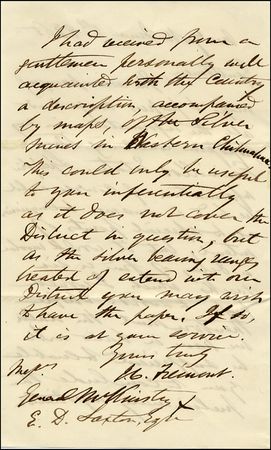 I had received from a
gentleman personally well
acquainted with the country
a description, accompanied
by maps, of the Silver
mines in Western Chihuahua.
This could only be useful
to you inferentially
as it does not cover the
District in question, but
as the silver bearing ranges
treated of extend into our
District you may wish
to have the paper. If so,
it is at your service.
Yours truly
J.C. Frémont.
Messrs
General McKinstry &
E. D. Saxton, Esqre